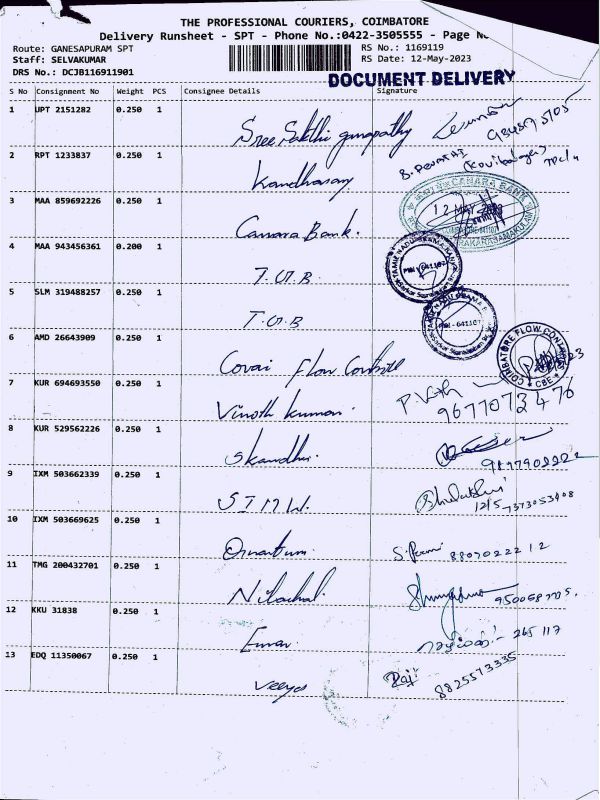 THE PROFESSIONAL COURIERS, COIMBATORE
Delivery Runsheet - SPT - Phone No.:0422-3505555 - Page No
Route: GANESAPURAM SPT RS No.: 1169119
Staff: SELVAKUMAR RS Date: 12-May-2023
DRS No.: DCJB116911901
DOCUMENT DELIVERY
S No Consignment No Weight PCS Consignee Details Signature
1 UPT 2151282 0.250 1 Sree Sakthi ganapathy
2 RPT 1233837 0.250 1 Kandhasamy
3 MAA 859692226 0.250 1 Canara Bank.
CANARA BANK
12 MAY
4 MAA 943456361 0.200 1 T.G.B.
5 SLM 319488257 0.250 1 T.G.B
PIN - 641107
6 AMD 26643909 0.250 1 Covai Flow Controll
COIMBATORE FLOW CONTROLS
CBE
7 KUR 694693550 0.250 1 Vinoth kumar.
9677073476
8 KUR 529562226 0.250 1 Skandhi.
9 IXM 503662339 0.250 1 STMW.
12/5 7373053908
10 IXM 503669625 0.250 1 Quantum. 8807022212
11 TMG 200432701 0.250 1 Nilachal.
12 KKU 31838 0.250 1 265 117
13 EDQ 11350067 0.250 1 Raj 8825573335